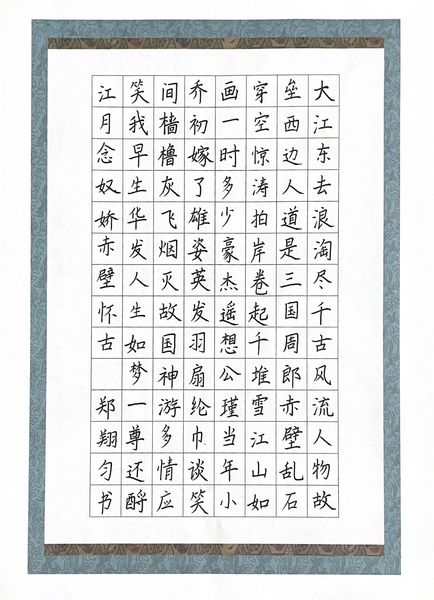 大江东去浪淘尽千古风流人物故
垒西边人道是三国周郎赤壁乱石
穿空惊涛拍岸卷起千堆雪江山如
画一时多少豪杰遥想公瑾当年小
乔初嫁了雄姿英发羽扇纶巾谈笑
间樯橹灰飞烟灭故国神游多情应
笑我早生华发人生如梦一尊还酹
江月念奴娇赤壁怀古 郑翔匀书